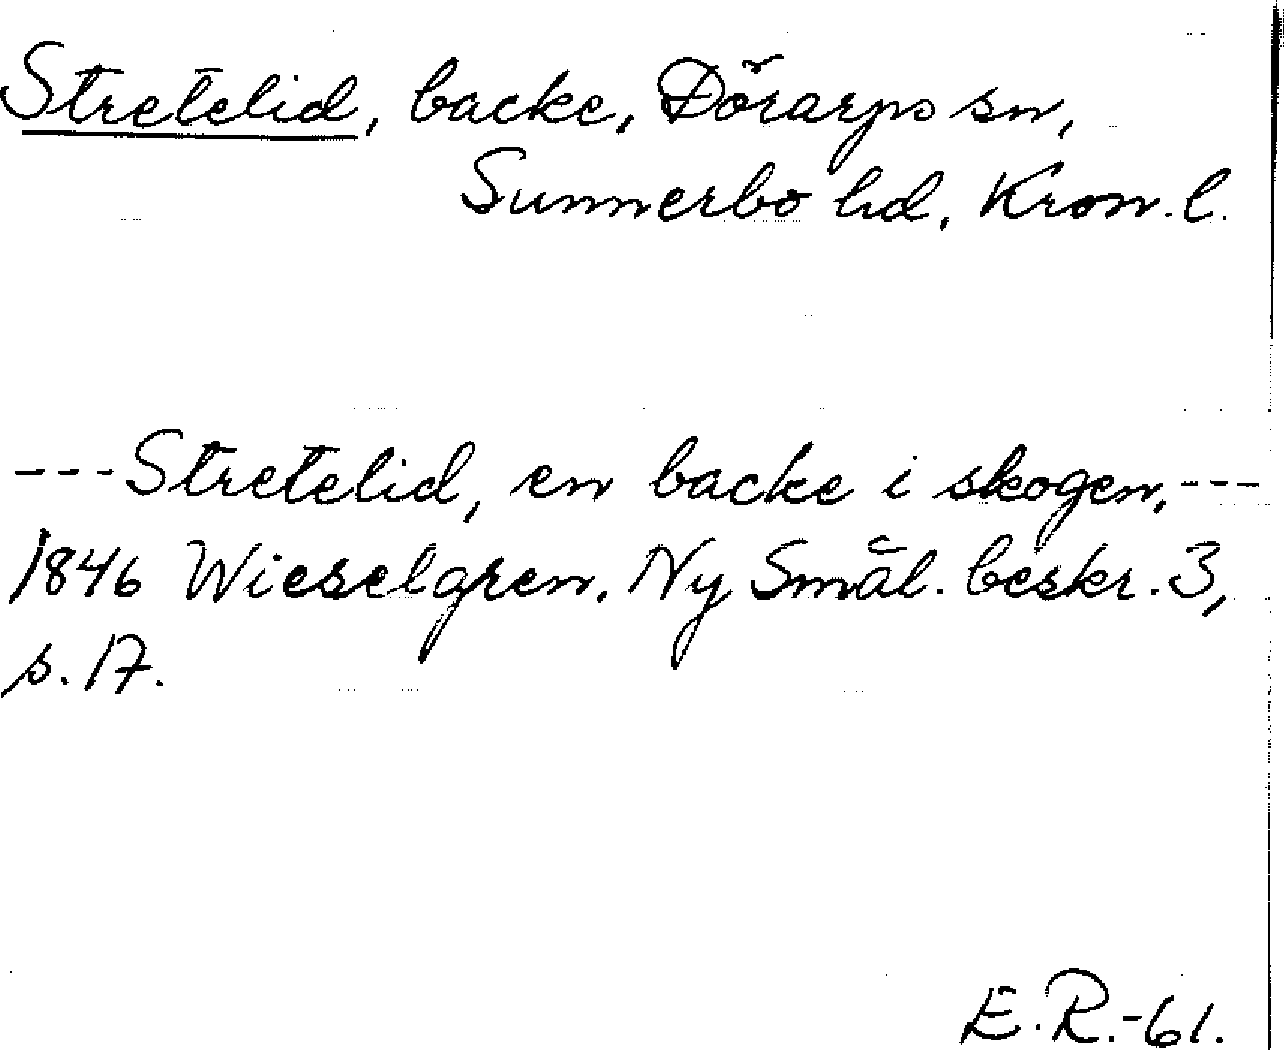 Stretelid, backe, Dörarps sn,
Sunnerbo hd, Kron. l.
---Stretelid, en backe i skogen.---
1846 Wieselgren. Ny Smål. beskr. 3,
s. 17.
E.R.-61.